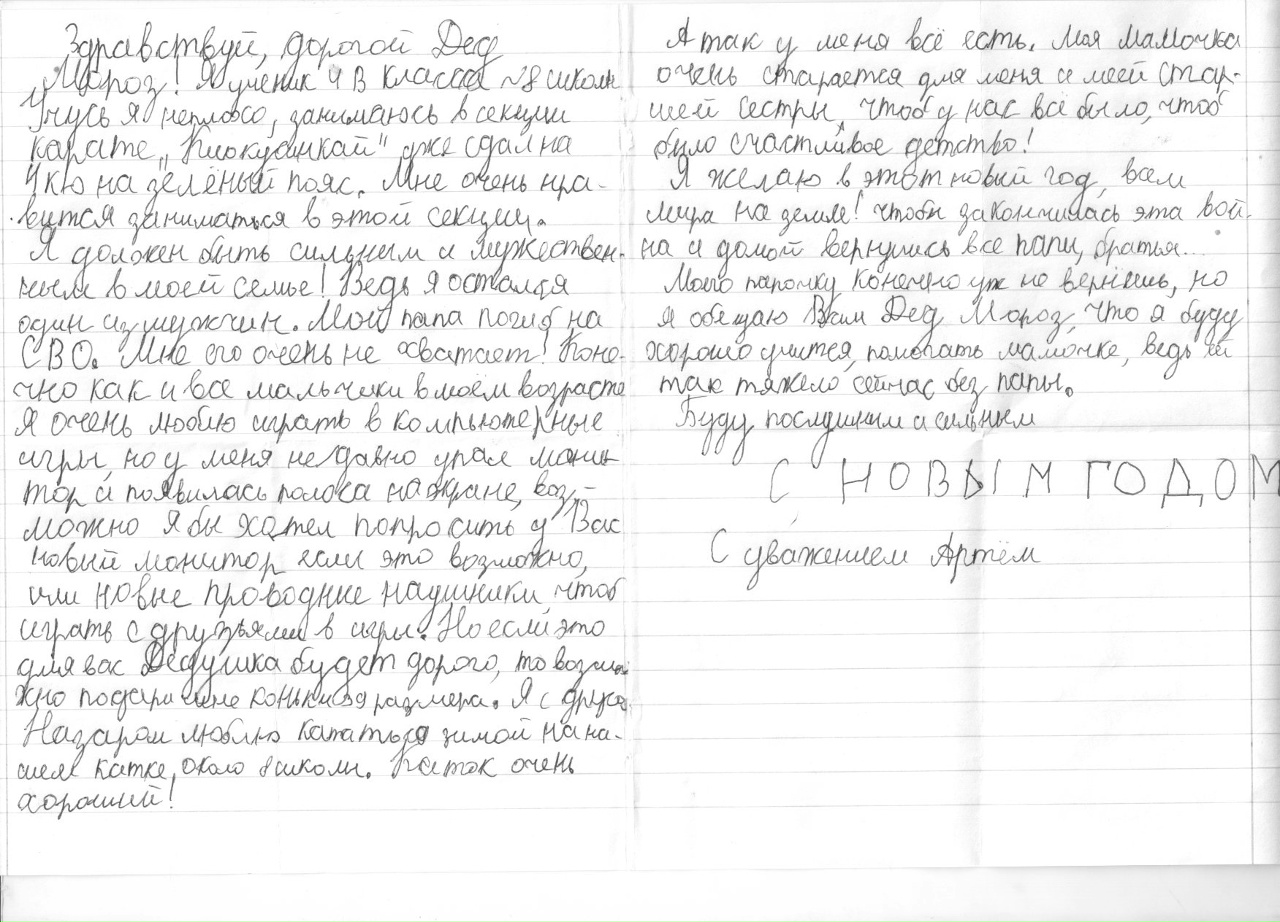 Здравствуй, дорогой Дед
Мороз! Я ученик 4 В класса №8 школы
Учусь я неплохо, занимаюсь в секции
карате „Киокусинкай" уже сдал на
4 кю на зелёный пояс. Мне очень нра-
вится заниматься в этой секции.
Я должен быть сильным и мужествен-
ным в моей семье! Ведь я остался
один из мужчин. Мой папа погиб на
СВО. Мне его очень не хватает! Коне-
чно как и все мальчики в моём возрасте
Я очень люблю играть в компьютерные
игры, но у меня недавно упал мони-
тор и появилась полоса на экране, воз-
можно я бы хотел попросить у Вас
новый монитор если это возможно,
или новые проводные наушники, чтоб
играть с друзьями в игры. Но если это
для вас Дедушка будет дорого, то возмо
жно подари мне коньки 39 размера. Я с другом
Назаром люблю кататься зимой на на-
шем катке, около 8 школы. Каток очень
хороший!
А так у меня всё есть. Моя мамочка
очень старается для меня и моей стар-
шей сестры, чтоб у нас всё было, чтоб
было счастливое детство!
Я желаю в этот новый год, всем
мира на земле! чтобы закончилась эта вой-
на и домой вернулись все папы, братья...
Моего папочку конечно уж не вернёшь, но
я обещаю Вам Дед Мороз, что я буду
хорошо учится, помогать мамочке, ведь ей
так тяжело, сейчас без папы.
Буду послушным и сильным
С НОВЫМ ГОДОМ
С уважением Артём